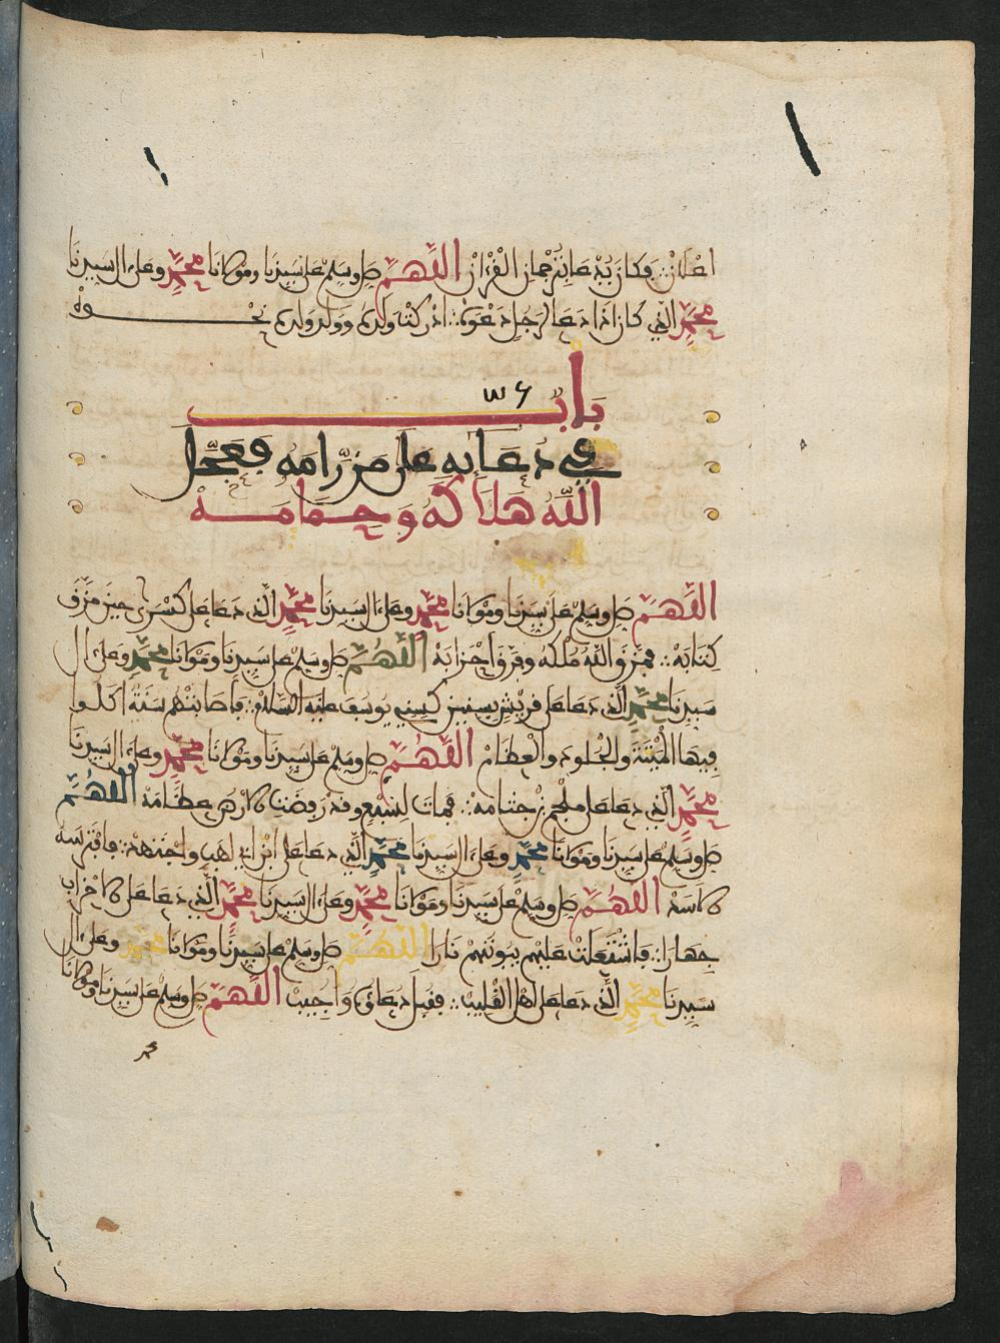 فكان يدعا بترجمان القرءان اللهم صل وسلم على سيدنا ومولانا محمد وعلى ءال سيدنا
محمد الذي كان اذا دعا لرجل دعوة ادركت ولده وولد ولده
باب
في دعايه على من رامه فعجل
الله هلاكه وحمامه
اللهم صل وسلم على سيدنا ومولانا محمد وعلى ءال سيدنا محمد الذي دعا على كسرى حين مزق
كتابه فمزق الله ملكه وفرق احزابه اللهم صل وسلم على سيدنا ومولانا محمد وعلى ءال
سيدنا محمد الذي دعا على قريش بسنين كسني يوسف عليه السلام فاصابتهم سنة اكلوا
فيها الميتة والجلود والعظام اللهم صل وسلم على سيدنا ومولانا محمد وعلى ءال سيدنا
محمد الذي دعا على محلم بن جثامه فمات لسبع وقد رفضت الارض عظامه اللهم
صل وسلم على سيدنا ومولانا محمد وعلى ءال سيدنا محمد الذي دعا على ابن ابي لهب واجتهد فافترسه
الاسد اللهم صل وسلم على سيدنا ومولانا محمد وعلى ءال سيدنا محمد الذي دعا على الاحزاب
جهارا فاشتعلت عليهم بيوتهم نارا اللهم صل وسلم على سيدنا ومولانا محمد وعلى ءال
سيدنا محمد الذي دعا على اهل القليب فقبل دعاؤه واجيب اللهم صل وسلم على سيدنا ومولانا
محمد